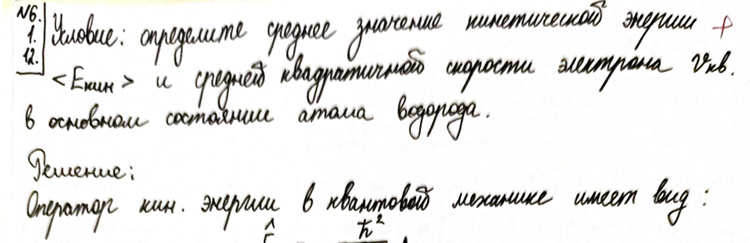 №6.
1.
12.
Условие: определите среднее значение кинетической энергии +
<Eкин> и средней квадратичной скорости электрона Vкв.
в основном состоянии атома водорода.
Решение:
Оператор кин. энергии в квантовой механике имеет вид:
ħ²